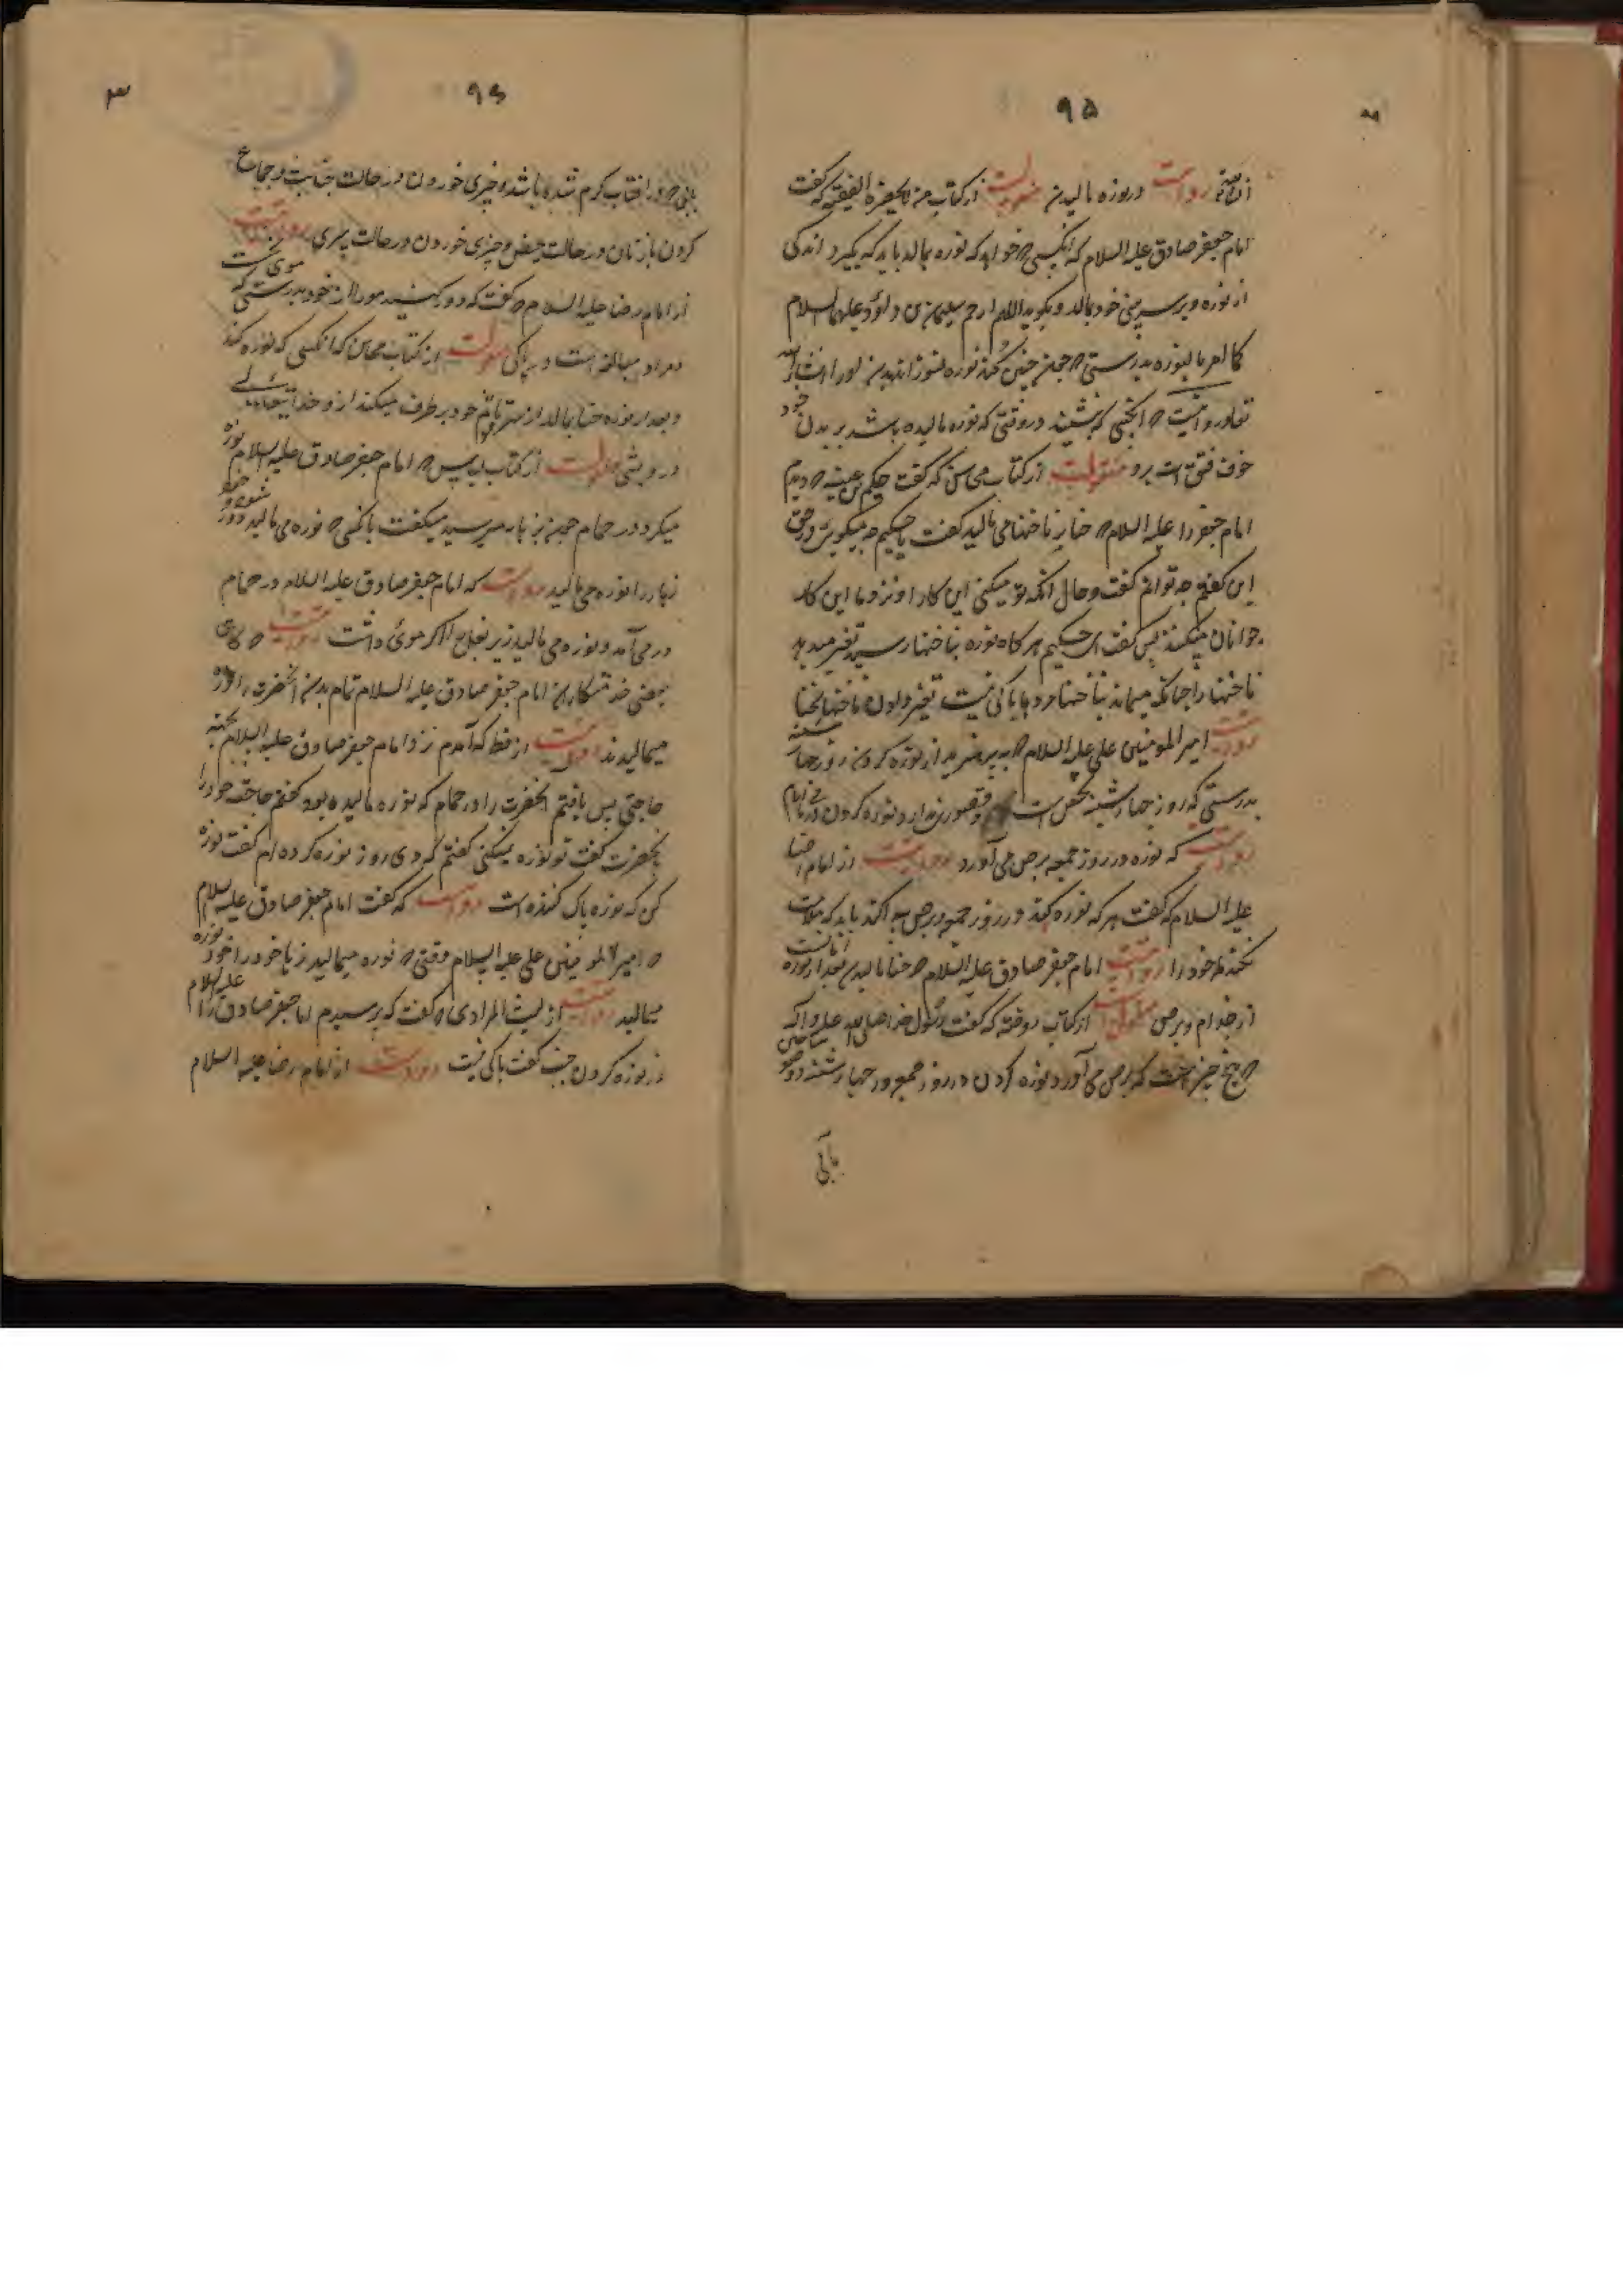 ۹۵
روایت در نوره مالیدن منقولست از کتاب من لا یحضره الفقیه که گفت
امام جعفر صادق علیه السلام که انکسی که خواهد که نوره بمالد باید که بگیرد اندکی
از نوره و بر سر بینی خود بمالد و بگوید اللهم ارحم سلیمان بن داود علیهما السلام
کما امر بالنوره بدرستی که چون چنین کند نوره نسوزاند بدن او را انشاء الله
تعالی و روایتست که انکسی که بنشیند در وقتی که نوره مالیده باشد بر بدن خود
خوف فتق است برو منقولست از کتاب محاسن که گفت حکیم بن عیینه که دیدم
امام جعفر را علیه السلام که حنا بر ناخنها می مالید گفت یا حکیم چه میگویی در حق
این گفتم چه توانم گفت و حال آنکه تو میکنی این کار را و نزد ما این کار
جوانان میکنند پس گفت ای حکیم هر گاه نوره بناخنها رسید تغیر میدهد
ناخنها را چنانکه میماند بناخنها مردها باکی نیست تغیر دادن ناخنها بحنا
روایتست امیر المومنین علی علیه السلام که بپرهیزید از نوره کردن روز چهار شنبه
بدرستی که روز چهار شنبه نحس است و قصوری ندارد نوره کردن در باقی ایام
روایتست که نوره در روز جمعه برص می آورد و روایتست از امام رضا
علیه السلام که گفت هر که نوره کند در روز جمعه و برص پیدا کند باید که ملامت
نکند مگر خود را روایتست امام جعفر صادق علیه السلام که حنا مالیدن بعد از نوره امانست
از جذام و برص منقولست از کتاب روضه که گفت رسول خدا صلی الله علیه و اله
که پنج چیز است که برص می آورد نوره کردن در روز جمعه و در چهار شنبه و وضو ساختن
بآبی
۹۶
۳
بآبی که در افتاب گرم شده باشد و چیزی خوردن در حالت جنابت و جماع
کردن با زنان در حالت حیض و چیزی خوردن در حالت سیری روایتست
از امام رضا علیه السلام که گفت که دور کنید مو را از خود بدرستی که
مراد مبالغه است در پاکی منقولست از کتاب محاسن که انکسی که نوره کند
و بعد از نوره حنا بمالد از سر تا قدم خود بر طرف میکند ازو خدا تعالی
درویشی منقولست از کتاب لباس که امام جعفر صادق علیه السلام نوره
میکرد در حمام چون بزهار میرسید میگفت باکسی که نوره می مالید دور شو و خود
زهار را نوره می مالید روایتست که امام جعفر صادق علیه السلام در حمام
در می آمد و نوره می مالید زیر بغل را اگر موی داشت روایتست که گاهی
بعضی خدمتکاران امام جعفر صادق علیه السلام تمام بدن آنحضرت را نوره
میمالیدند روایتست از که آمدم نزد امام جعفر صادق علیه السلام بجهة
حاجتی پس یافتم آنحضرت را در حمام که نوره مالیده بود گفتم حاجت خود را
بحضرت گفت تو نوره نمیکنی گفتم که دی روز نوره کرده ام گفت نوره
کن که نوره پاک کننده است روایتست که گفت امام جعفر صادق علیه السلام
که امیر المومنین علی علیه السلام وقتی که نوره میمالید زهار خود را خود نوره
میمالید روایتست از لیث المرادی که گفت که پرسیدم امام جعفر صادق را علیه السلام
از نوره کردن جنب گفت باکی نیست روایتست از امام رضا علیه السلام